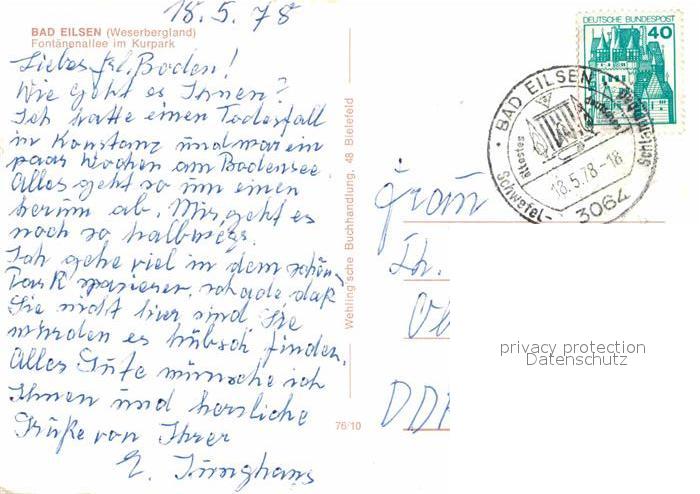 18.5.78
BAD EILSEN (Weserbergland)
Fontänenallee im Kurpark
Liebes Frl. Boden!
Wie geht es Ihnen?
Ich hatte einen Todesfall
in Konstanz und war ein
paar Wochen am Bodensee.
Alles geht so um einen
herum ab. Mir geht es
noch so halbwegs.
Ich gehe viel in dem schön.
Park spazieren, schade, daß
Sie nicht hier sind Sie
würden es hübsch finden.
Alles Gute wünsche ich
Ihnen und herzliche
Grüße von Ihrer
E. Junghans
Wehling'sche Buchhandlung, 48 Bielefeld
76/10
DEUTSCHE BUNDESPOST
40
BAD EILSEN
ältestes
Schwefel-
18.5.78-18
3064
Frau
DDR
privacy protection
Datenschutz